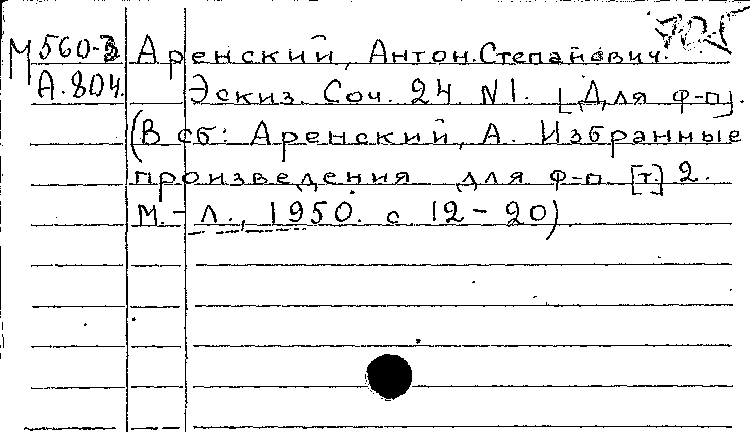 М 560-3 Аренский, Антон Степанович.
А.804. Эскиз. Соч. 24. N1. [Для ф-п].
(В сб: Аренский, А. Избранные
произведения для ф-п [т.] 2.
М.-Л., 1950. с 12-20)